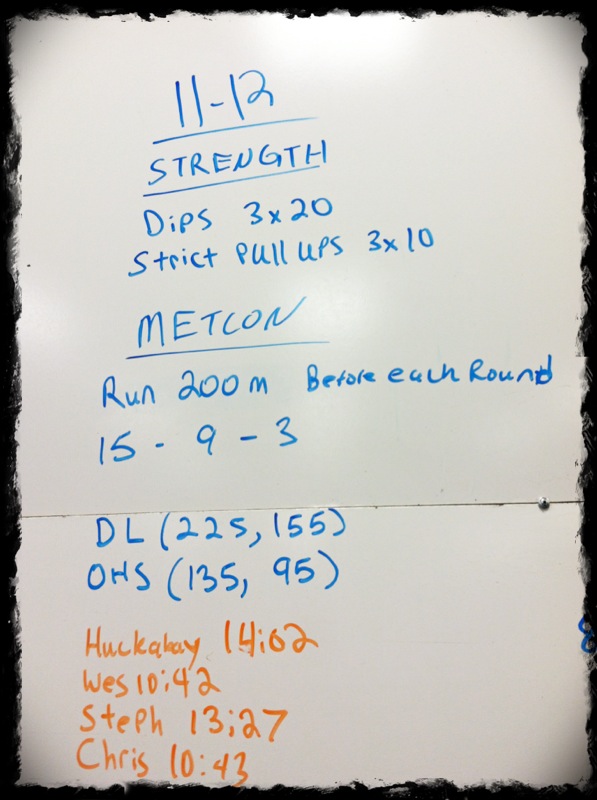 11-12
STRENGTH
Dips 3x20
Strict Pull ups 3x10
METCON
Run 200m Before each Round
15 - 9 - 3
DL (225, 155)
OHS (135, 95)
Huckabay 14:02
Wes 10:42
Steph 13:27
Chris 10:43